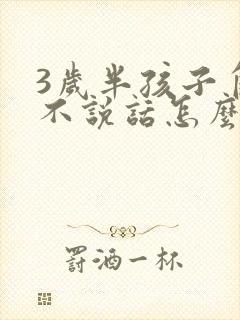 3歲半孩子
不說話怎麼
罰酒一杯